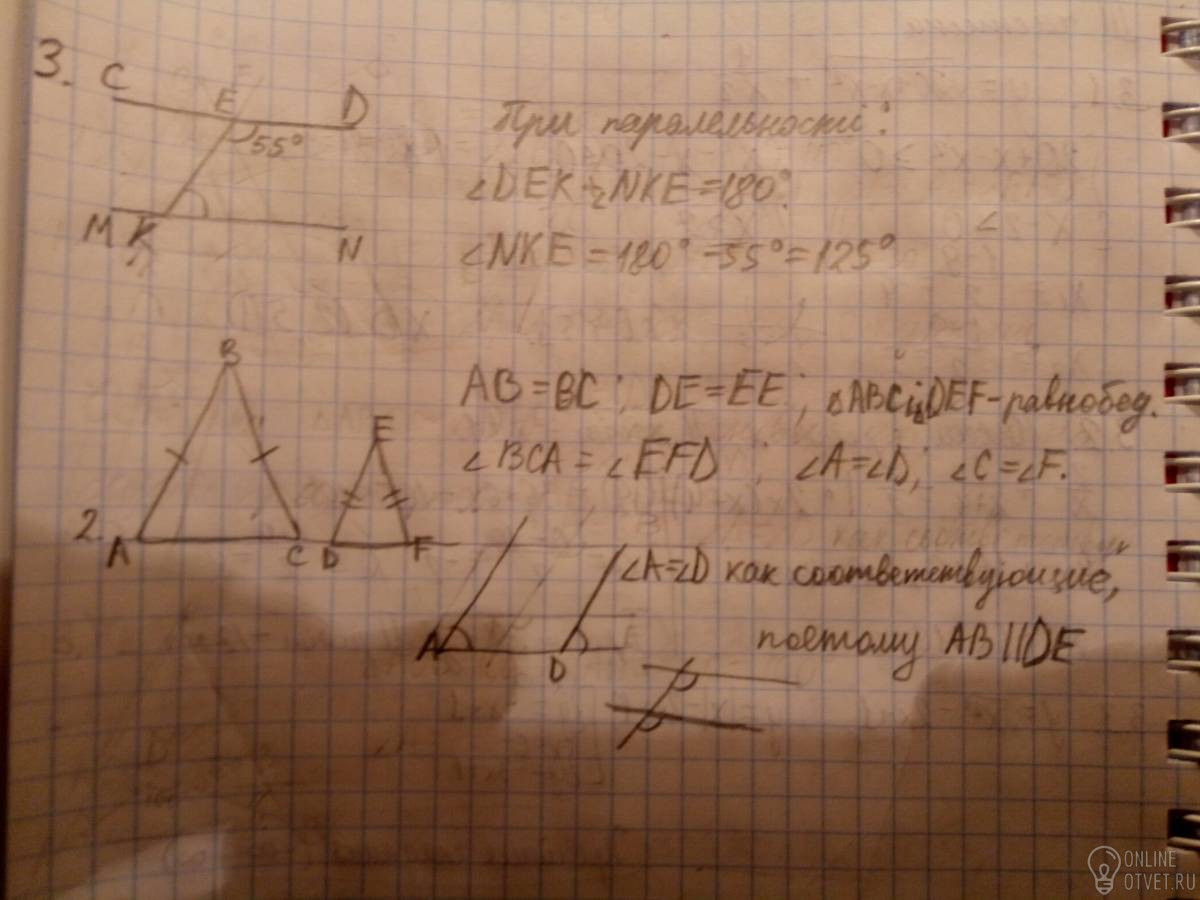 3.
C
E
D
55°
M K
N
При паралельности:
∠DEK + ∠NKE = 180°
∠NKE = 180° - 55° = 125°
B
E
2.
A
C D
F
AB = BC ; DE = EE ; ΔABC и ΔDEF - равнобед.
∠BCA = ∠EFD ; ∠A = ∠D ; ∠C = ∠F.
A
D
∠A = ∠D как соответствующие,
поетому AB || DE
ONLINE
OTVET.RU